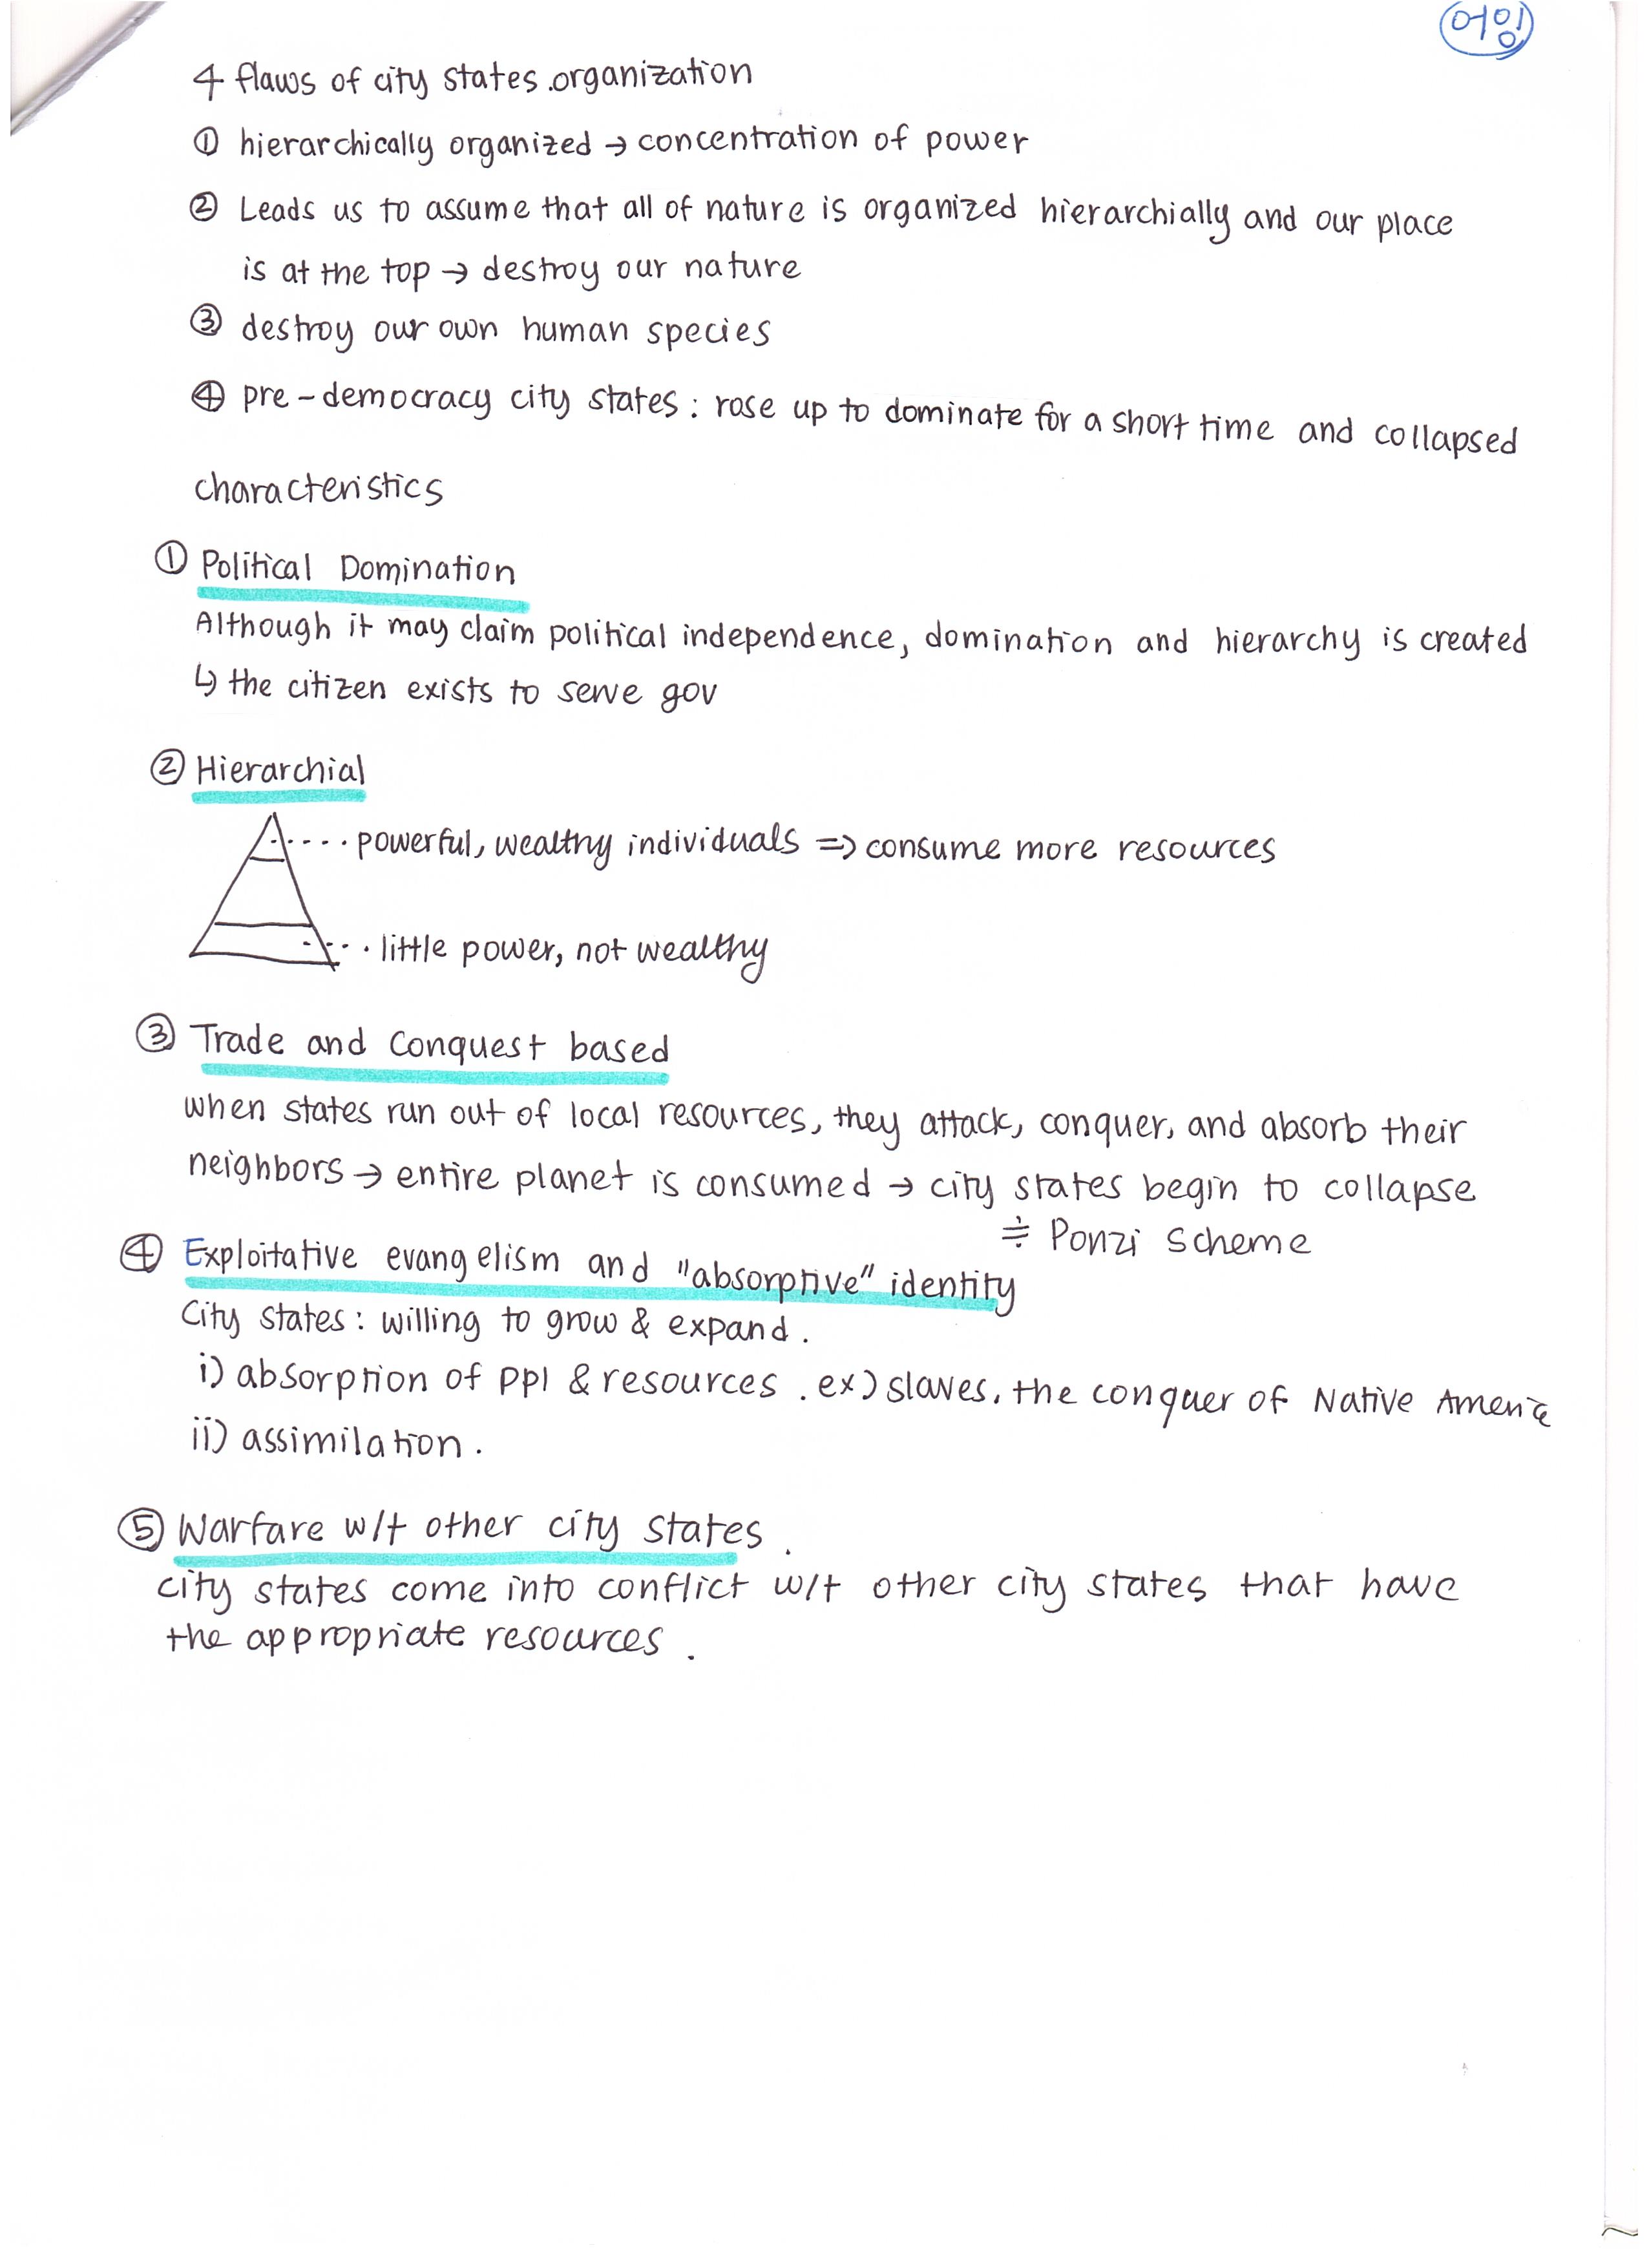 어잉
4 flaws of city states organization
① hierarchically organized → concentration of power
② Leads us to assume that all of nature is organized hierarchially and our place
is at the top → destroy our nature
③ destroy our own human species
④ pre-democracy city states : rose up to dominate for a short time and collapsed
characteristics
① Political Domination
Although it may claim political independence, domination and hierarchy is created
↳ the citizen exists to serve gov
② Hierarchial
powerful, wealthy individuals ⇒ consume more resources
little power, not wealthy
③ Trade and Conquest based
when states run out of local resources, they attack, conquer, and absorb their
neighbors → entire planet is consumed → city states begin to collapse
≑ Ponzi Scheme
④ Exploitative evangelism and "absorptive" identity
City states : willing to grow & expand.
i) absorption of ppl & resources . ex) slaves, the conquer of Native
ii) assimilation.
⑤ Warfare w/t other city states.
city states come into conflict w/t other city states that have
the appropriate resources.